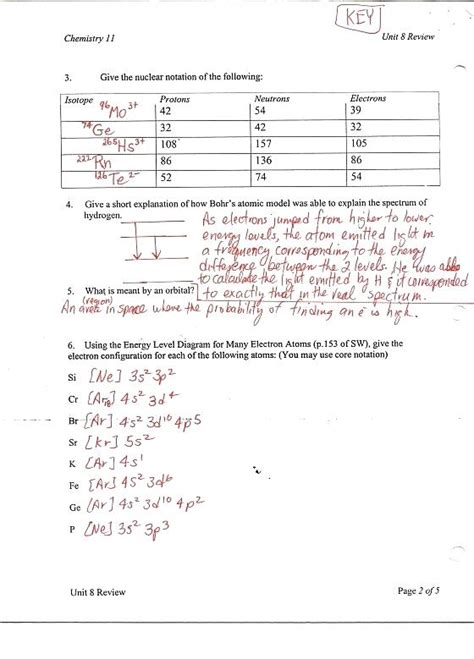 KEY
Chemistry 11 Unit 8 Review
3. Give the nuclear notation of the following:
Isotope Protons Neutrons Electrons
96Mo3+ 42 54 39
74Ge 32 42 32
265Hs3+ 108 157 105
222Rn 86 136 86
126Te2- 52 74 54
4. Give a short explanation of how Bohr's atomic model was able to explain the spectrum of
hydrogen.
As electrons jumped from higher to lower
energy levels, the atom emitted light in
a frequency corresponding to the energy
difference between the 2 levels. He was able
to calculate the light emitted by H & it corresponded
to exactly that in the real spectrum.
5. What is meant by an orbital?
(region)
An area in space where the probability of finding an e is high.
6. Using the Energy Level Diagram for Many Electron Atoms (p.153 of SW), give the
electron configuration for each of the following atoms: (You may use core notation)
Si [Ne] 3s² 3p²
Cr [Ar] 4s² 3d⁴
Br [Ar] 4s² 3d¹⁰ 4p⁵
Sr [Kr] 5s²
K [Ar] 4s¹
Fe [Ar] 4s² 3d⁶
Ge [Ar] 4s² 3d¹⁰ 4p²
P [Ne] 3s² 3p³
Unit 8 Review Page 2 of 5